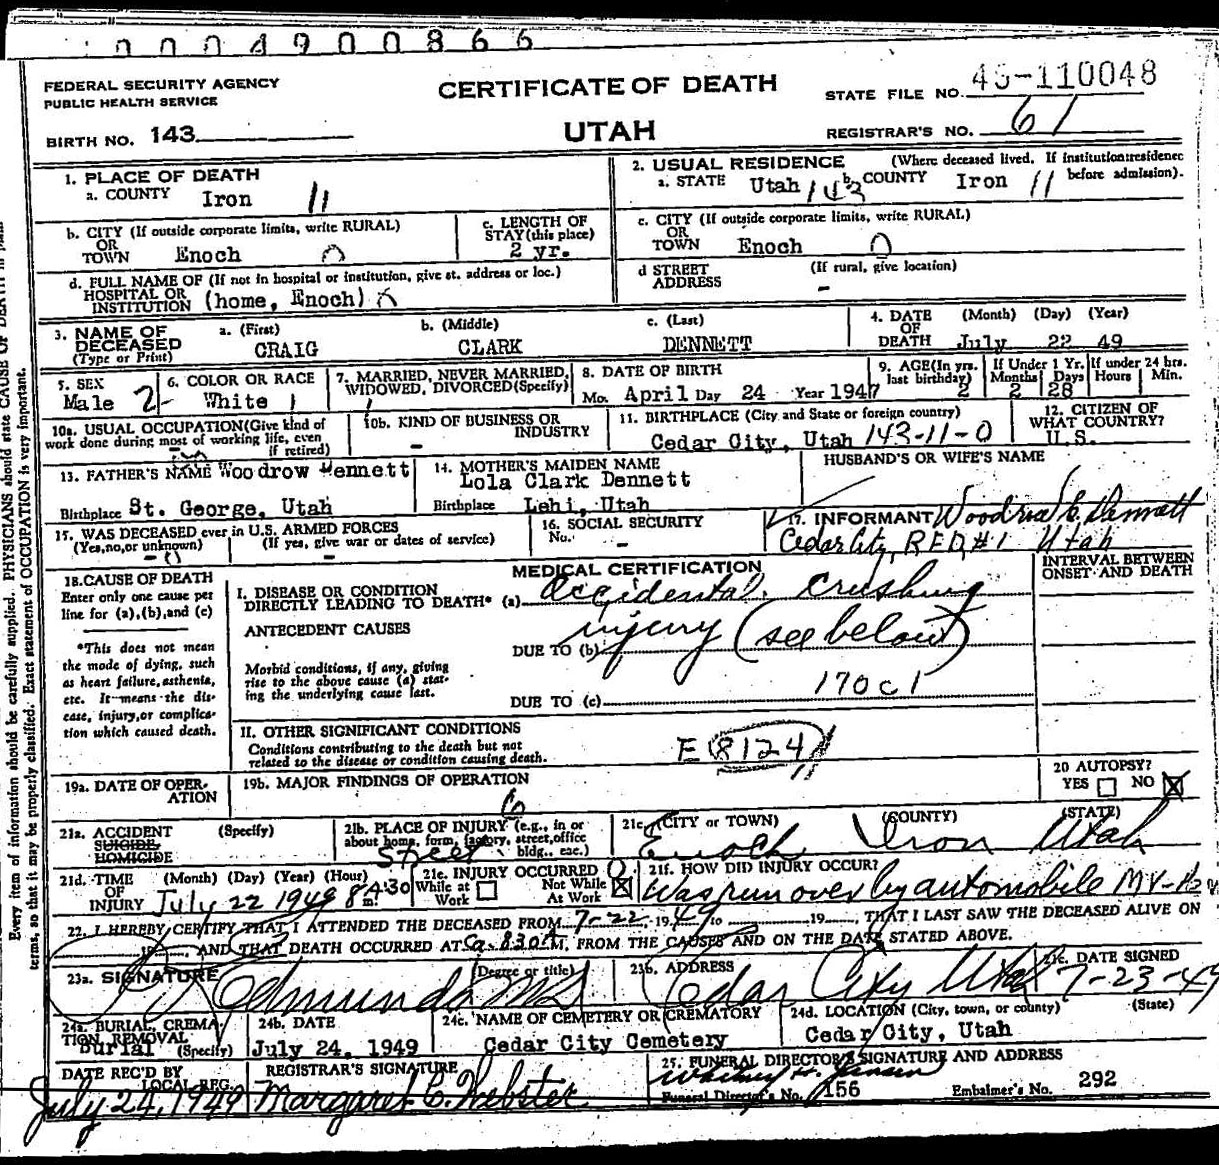 0004900866
FEDERAL SECURITY AGENCY
PUBLIC HEALTH SERVICE
CERTIFICATE OF DEATH
STATE FILE NO. 49-110048
BIRTH NO. 143
UTAH
REGISTRAR'S NO. 61
1. PLACE OF DEATH
a. COUNTY Iron 11
2. USUAL RESIDENCE (Where deceased lived. If institution:residence before admission).
a. STATE Utah 143 b. COUNTY Iron 11
b. CITY (If outside corporate limits, write RURAL)
OR
TOWN Enoch 0
c. LENGTH OF
STAY (this place)
2 yr.
c. CITY (If outside corporate limits, write RURAL)
OR
TOWN Enoch 0
d. FULL NAME OF (If not in hospital or institution, give st. address or loc.)
HOSPITAL OR
INSTITUTION (home, Enoch)
d STREET
ADDRESS (If rural, give location)
-
3. NAME OF
DECEASED
(Type or Print)
a. (First)
CRAIG
b. (Middle)
CLARK
c. (Last)
DENNETT
4. DATE
OF
DEATH
(Month) (Day) (Year)
July 22 49
5. SEX
Male 2-
6. COLOR OR RACE
White 1
7. MARRIED, NEVER MARRIED,
WIDOWED, DIVORCED(Specify)
1
8. DATE OF BIRTH
Mo. April Day 24 Year 1947
9. AGE(In yrs.
last birthday)
2
If Under 1 Yr.
Months Days
2 28
If under 24 hrs.
Hours Min.
10a. USUAL OCCUPATION(Give kind of
work done during most of working life, even
if retired)
10b. KIND OF BUSINESS OR
INDUSTRY
-
11. BIRTHPLACE (City and State or foreign country)
Cedar City, Utah 143-11-0
12. CITIZEN OF
WHAT COUNTRY?
U.S.
13. FATHER'S NAME Woodrow Dennett
Birthplace St. George, Utah
14. MOTHER'S MAIDEN NAME
Lola Clark Dennett
Birthplace Lehi, Utah
HUSBAND'S OR WIFE'S NAME
15. WAS DECEASED ever in U.S. ARMED FORCES
(Yes,no,or unknown) (If yes, give war or dates of service)
- 0 -
16. SOCIAL SECURITY
No. -
17. INFORMANT Woodrow C. Dennett
Cedar City, RFD #1 Utah
MEDICAL CERTIFICATION
INTERVAL BETWEEN
ONSET AND DEATH
18. CAUSE OF DEATH
Enter only one cause per
line for (a),(b),and (c)
*This does not mean
the mode of dying, such
as heart failure, asthenia,
etc. It means the dis-
ease, injury,or complica-
tion which caused death.
I. DISEASE OR CONDITION
DIRECTLY LEADING TO DEATH* (a) Accidental crushing
ANTECEDENT CAUSES
DUE TO (b) injury (see below)
Morbid conditions, if any, giving
rise to the above cause (a) stat-
ing the underlying cause last.
DUE TO (c) 170c1
II. OTHER SIGNIFICANT CONDITIONS
Conditions contributing to the death but not
related to the disease or condition causing death.
E 8124
19a. DATE OF OPER-
ATION
19b. MAJOR FINDINGS OF OPERATION
6
20 AUTOPSY?
YES NO X
21a. ACCIDENT (Specify)
SUICIDE
HOMICIDE
21b. PLACE OF INJURY (e.g., in or
about home, form, factory, street,office
bldg., etc.)
Street
21c. (CITY or TOWN) (COUNTY) (STATE)
Enoch Iron Utah
21d. TIME
OF
INJURY
(Month) (Day) (Year) (Hour)
July 22 1949 8 A:30 m.
21e. INJURY OCCURRED 0
While at
Work
Not While
At Work X
21f. HOW DID INJURY OCCUR?
Was run over by automobile
22. I HEREBY CERTIFY THAT I ATTENDED THE DECEASED FROM 7-22, 1949 to , 19 , THAT I LAST SAW THE DECEASED ALIVE ON
19 , AND THAT DEATH OCCURRED AT Ca. 8:30 A M, FROM THE CAUSES AND ON THE DATE STATED ABOVE.
23a. SIGNATURE (Degree or title)
Edmunds MD
23b. ADDRESS
Cedar City Utah
23c. DATE SIGNED
7-23-49
24a. BURIAL, CREMA-
TION, REMOVAL
Burial (Specify)
24b. DATE
July 24, 1949
24c. NAME OF CEMETERY OR CREMATORY
Cedar City Cemetery
24d. LOCATION (City, town, or county) (State)
Cedar City, Utah
DATE REC'D BY
LOCAL REG.
July 24, 1949
REGISTRAR'S SIGNATURE
Margaret C. Webster
25. FUNERAL DIRECTOR'S SIGNATURE AND ADDRESS
Funeral Director's No. 156 Embalmer's No. 292
Every item of information should be carefully supplied. PHYSICIANS should state CAUSE OF DEATH in plain
terms, so that it may be properly classified. Exact statement of OCCUPATION is very important.